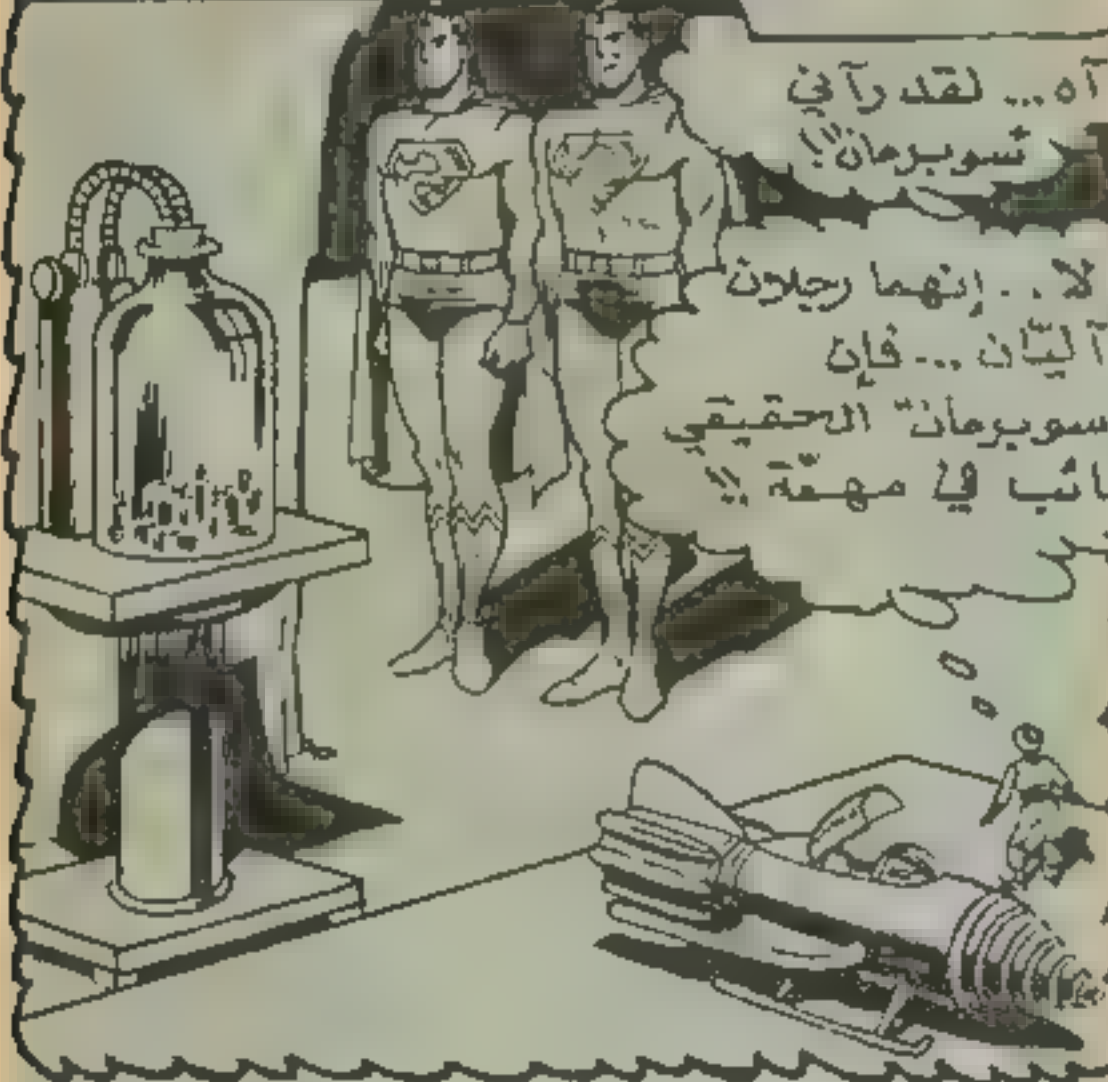 آه... لقد رآني
"سوبرمان"!!
لا... إنهما رجلان
آليّان... فإن
سوبرمان" الحقيقي
ائب في مهمّة!!